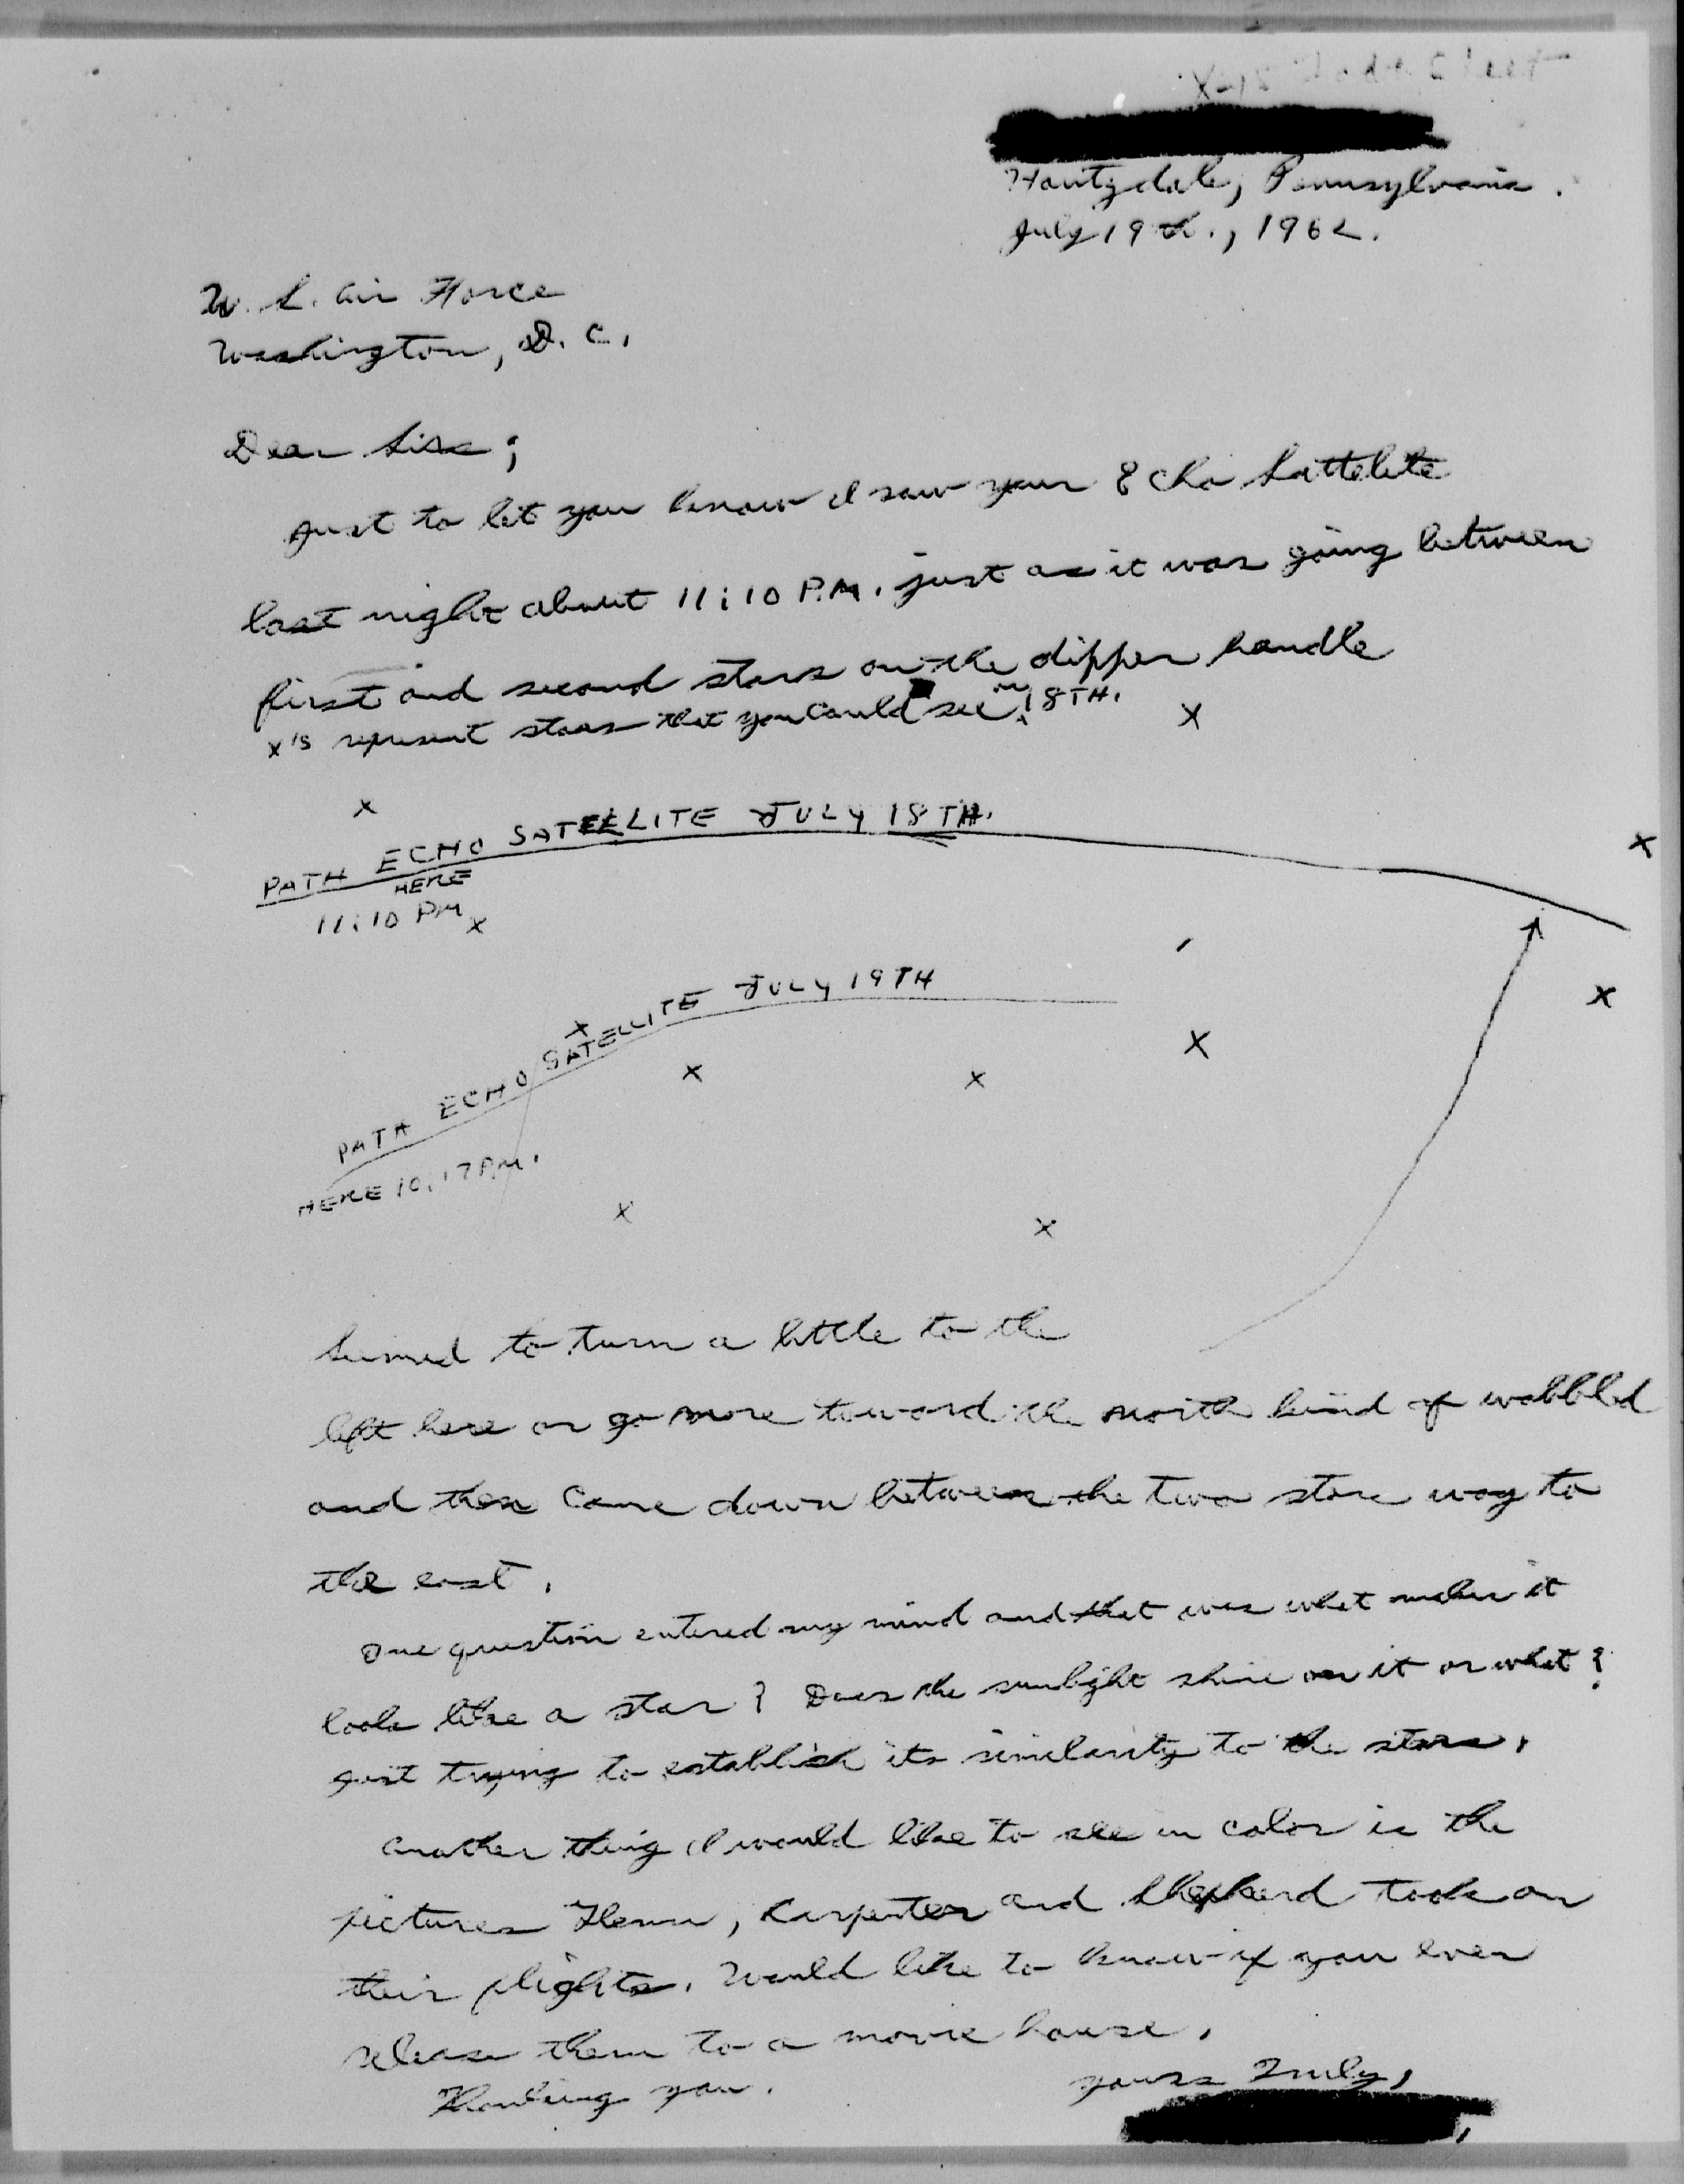 Houtzdale, Pennsylvania.
July 19th., 1962.
U. S. Air Force
Washington, D. C.
Dear Sirs;
Just to let you know I saw your Echo Sattelite
last night about 11:10 P.M. just as it was going between
first and second stars on the dipper handle
x's represent stars that you could see on 18TH.
PATH ECHO SATELLITE JULY 18TH.
HERE
11:10 PM
PATH ECHO SATELLITE JULY 19TH
HERE 10:17 P.M.
Seemed to turn a little to the
left here or go more toward the north kind of wobbled
and then came down between the two stars way to
the east.
One question entered my mind and that was what makes it
look like a star? Does the sunlight shine on it or what?
Just trying to establish its similarity to the stars.
Another thing I would like to see in color is the
pictures Glenn, Carpenter and Shepherd took on
their flights. Would like to know if you ever
release them to a movie house.
Thanking you.
Yours Truly,